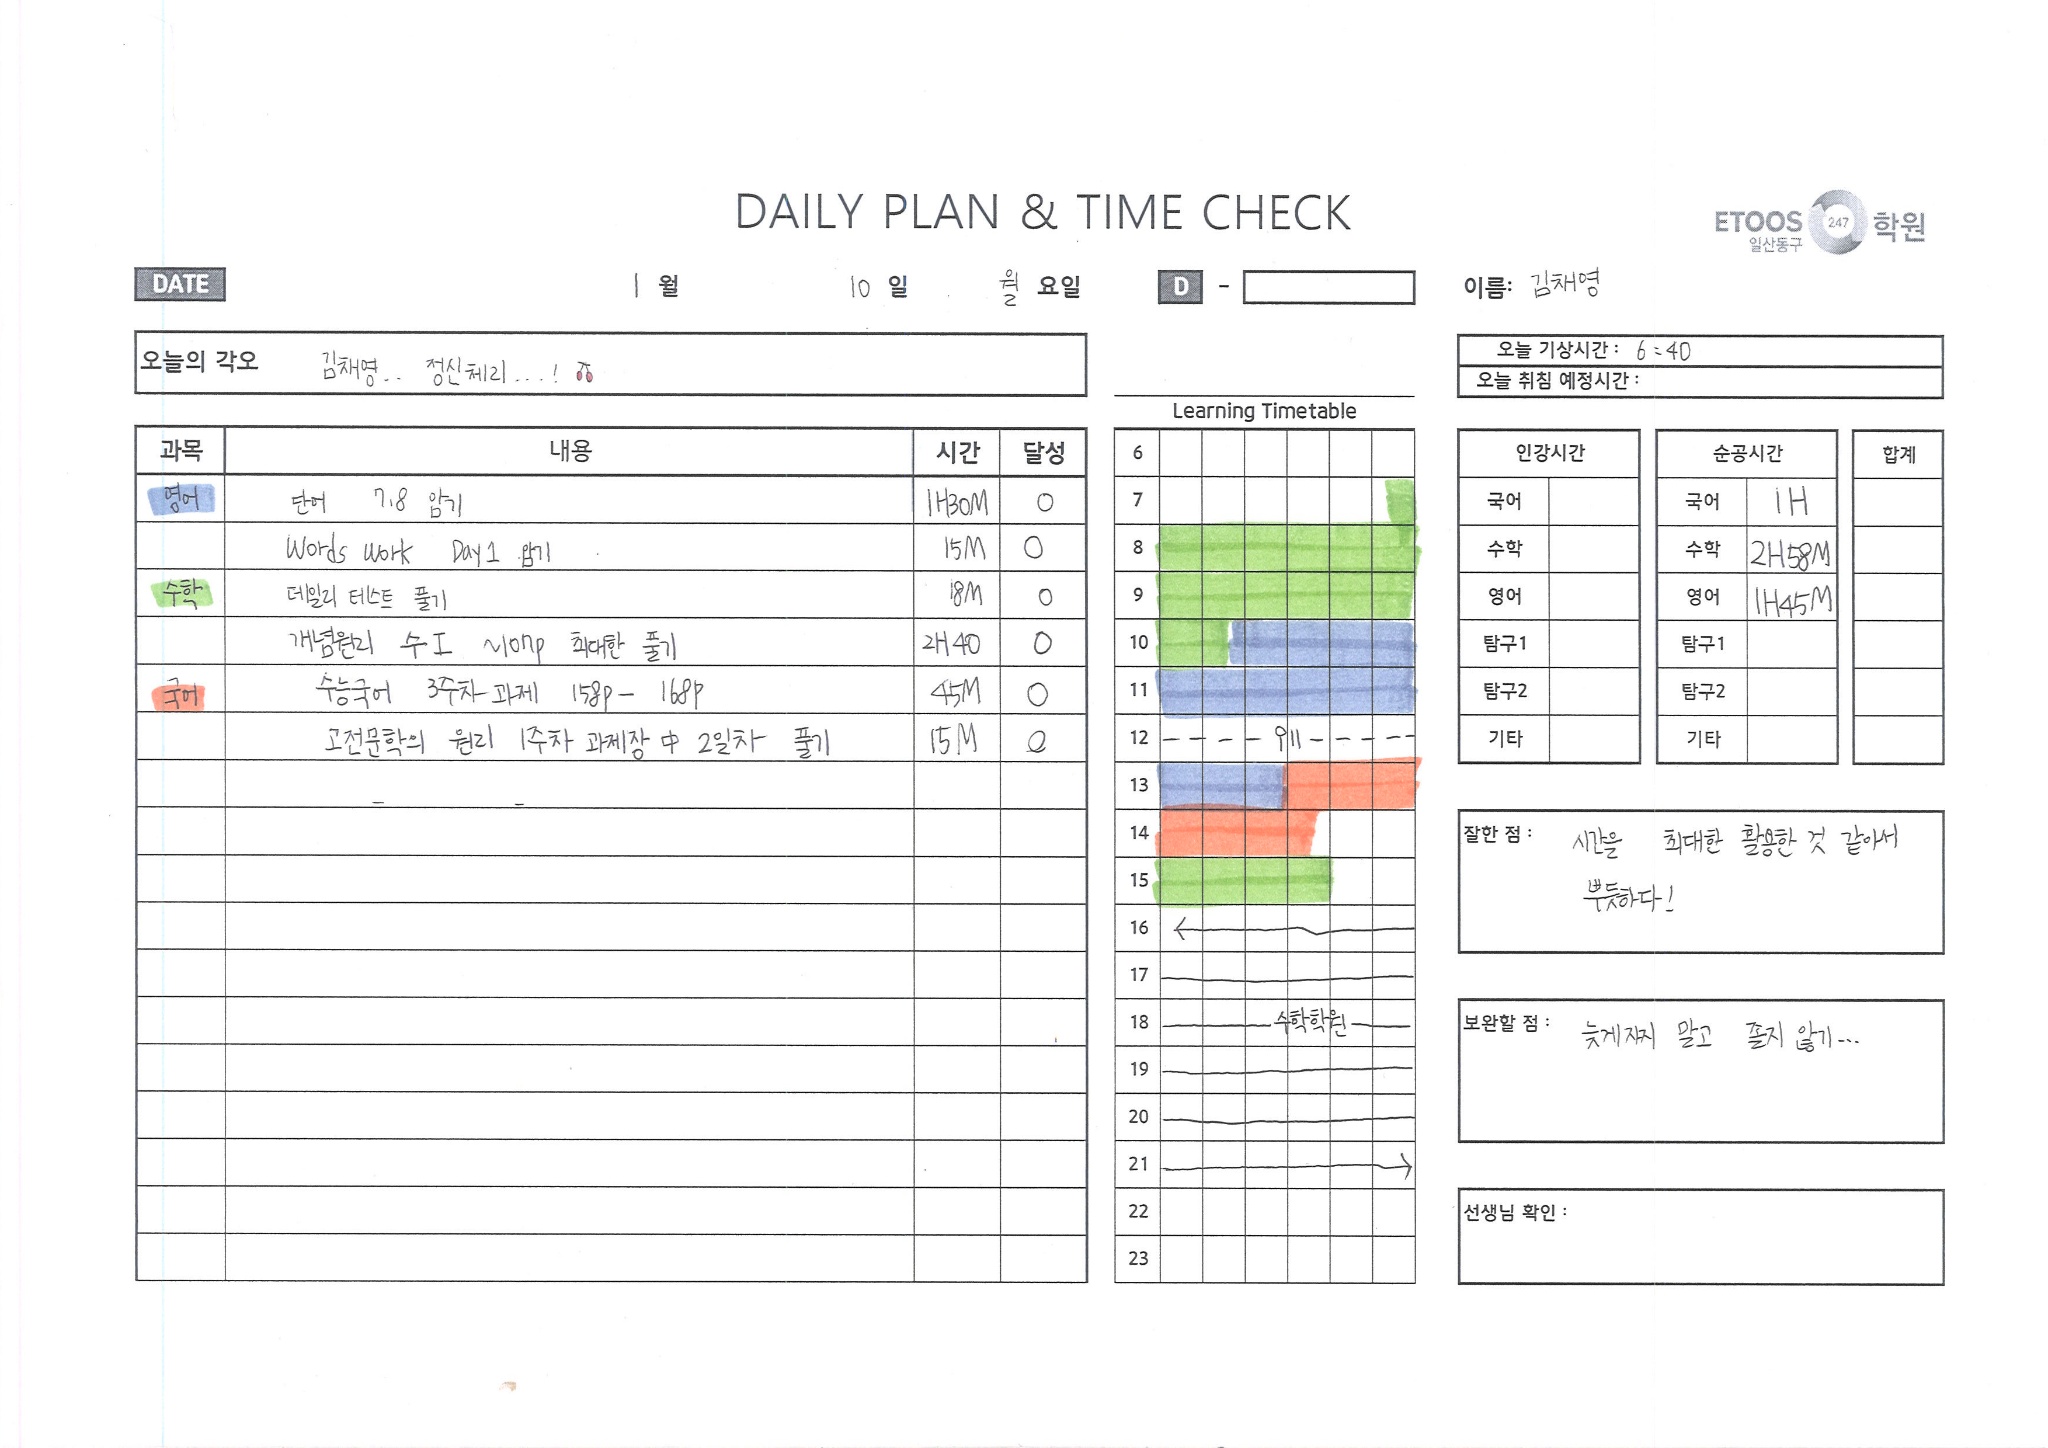 DAILY PLAN & TIME CHECK
ETOOS 247 학원
일산동구
DATE 1 월 10 일 월 요일 D - 이름: 김채영
오늘의 각오 김채영.. 정신체리...!
오늘 기상시간 : 6:40
오늘 취침 예정시간 :
과목 내용 시간 달성
영어 단어 7,8 암기 1H30M O
Words work Day 1 암기 15M O
수학 데일리 테스트 풀기 18M O
개념원리 수I ~110p 최대한 풀기 2H40 O
국어 수능국어 3주차 과제 158p - 168p 45M O
고전문학의 원리 1주차 과제장 中 2일차 풀기 15M O
Learning Timetable
6
7
8
9
10
11
12
13
14
15
16
17
18 수학학원
19
20
21
22
23
인강시간
국어
수학
영어
탐구1
탐구2
기타
순공시간
국어 1H
수학 2H58M
영어 1H45M
탐구1
탐구2
기타
합계
잘한 점 : 시간을 최대한 활용한 것 같아서
뿌듯하다!
보완할 점 : 늦게자지 말고 졸지 않기...
선생님 확인 :